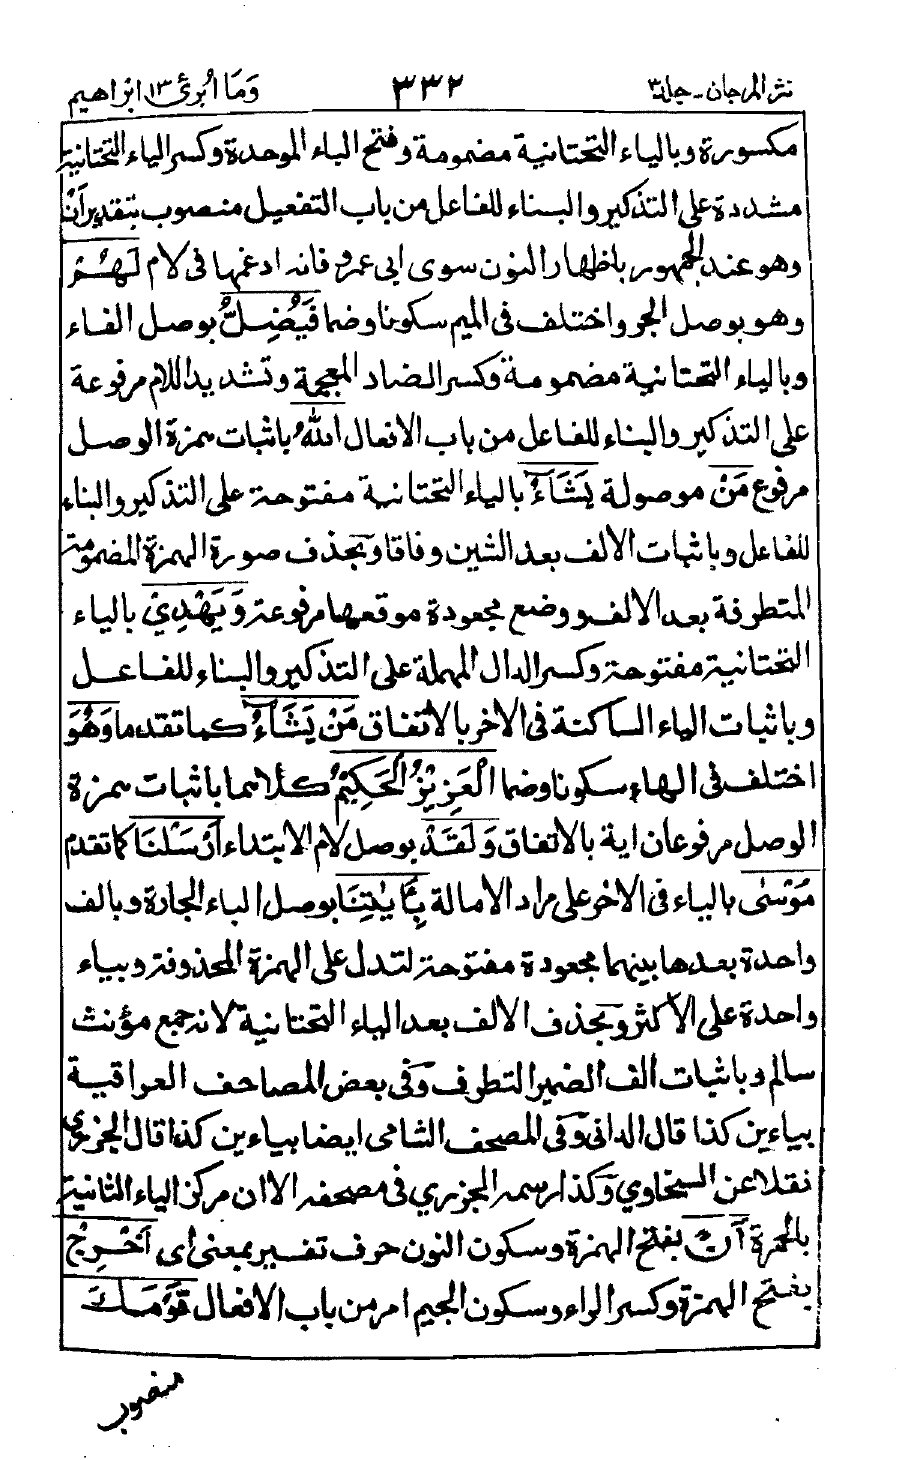 نثر المرجان - جلد ٣ ٣٣٢ وَمَا اُبَرِّئُ ١٣ ابراهيم
مكسورة وبالياء التحتانية مضمومة وفتح الباء الموحدة وكسر الياء التحتانية
مشددة على التذكير والبناء للفاعل من باب التفعيل منصوب بتقدير اَنْ
وهو عند الجمهور باظهار النون سوى ابى عمرو فانه ادغمها فى لام لَهُمْ
وهو بوصل الجر واختلف فى الميم سكونا وضما فَيُضِلُّ بوصل الفاء
وبالياء التحتانية مضمومة وكسر الضاد المعجمة وتشديد اللام مرفوعة
على التذكير والبناء للفاعل من باب الافعال اللهُ باثبات همزة الوصل
مرفوع مَنْ موصولة يَشَاءُ بالياء التحتانية مفتوحة على التذكير والبناء
للفاعل وباثبات الالف بعد الشين وفاقا وبحذف صورة الهمزة المضمومة
المتطرفة بعد الالف ووضع مجعودة موقعها مرفوعة وَيَهْدِيْ بالياء
التحتانية مفتوحة وكسر الدال المهملة على التذكير والبناء للفاعل
وباثبات الياء الساكنة فى الاخر بالاتفاق مَنْ يَشَاءُ كما تقدما وَهُوَ
اختلف فى الهاء سكونا وضما الْعَزِيْزُ الْحَكِيْمُ كلاهما باثبات همزة
الوصل مرفوعان اية بالاتفاق وَلَقَدْ بوصل لام الابتداء اَرْسَلْنَا كما تقدم
مُوْسٰى بالياء فى الاخر على مراد الامالة بِاٰيٰتِنَا بوصل الباء الجارة وبالف
واحدة بعدها بينهما مجعودة مفتوحة لتدل على الهمزة المحذوفة وبياء
واحدة على الاكثر وبحذف الالف بعد الياء التحتانية لانه جمع مؤنث
سالم وباثبات الف الضمير التطرف وفى بعض المصاحف العراقية
بياءين كذا قال الدانى وفى المصحف الشامى ايضا بياءين كذا قال الجزرى
نقلا عن السخاوي وكذا رسمه الجزري فى مصحفه الا ان مركز الياء الثانية
بالحمرة اَنْ بفتح الهمزة وسكون النون حرف تفسير بمعنى اى اَخْرِجْ
بفتح الهمزة وكسر الراء وسكون الجيم امر من باب الافعال قَوْمَكَ
منصوب